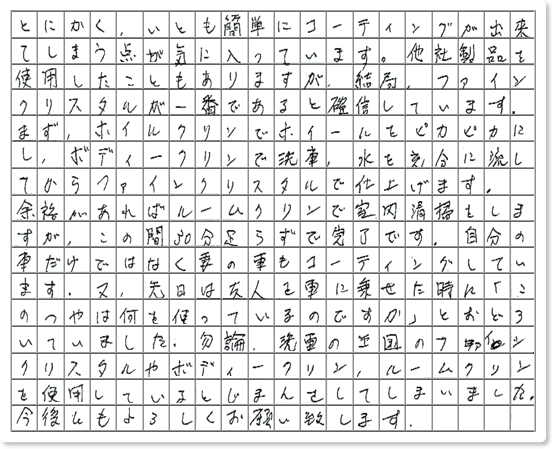 とにかく，いとも簡単にコーティングが出来
てしまう点が気に入っています。他社製品を
使用したこともありますが，結局，ファイン
クリスタルが一番であると確信しています。
まず，ホイルクリンでホイールをピカピカに
し，ボディークリンで洗車，水を充分に流し
てからファインクリスタルで仕上げます。
余裕があればルームクリンで室内清掃をしま
すが，この間30分足らずで完了です。自分の
車だけではなく妻の車もコーティングしてい
ます。又，先日は友人を車に乗せた時に「こ
のつやは何を使っているのですか」とおどろ
いていました。勿論，洗車の王国のファイン
クリスタルやボディークリン，ルームクリン
を使用しているとじまんをしてしまいました。
今後ともよろしくお願い致します。